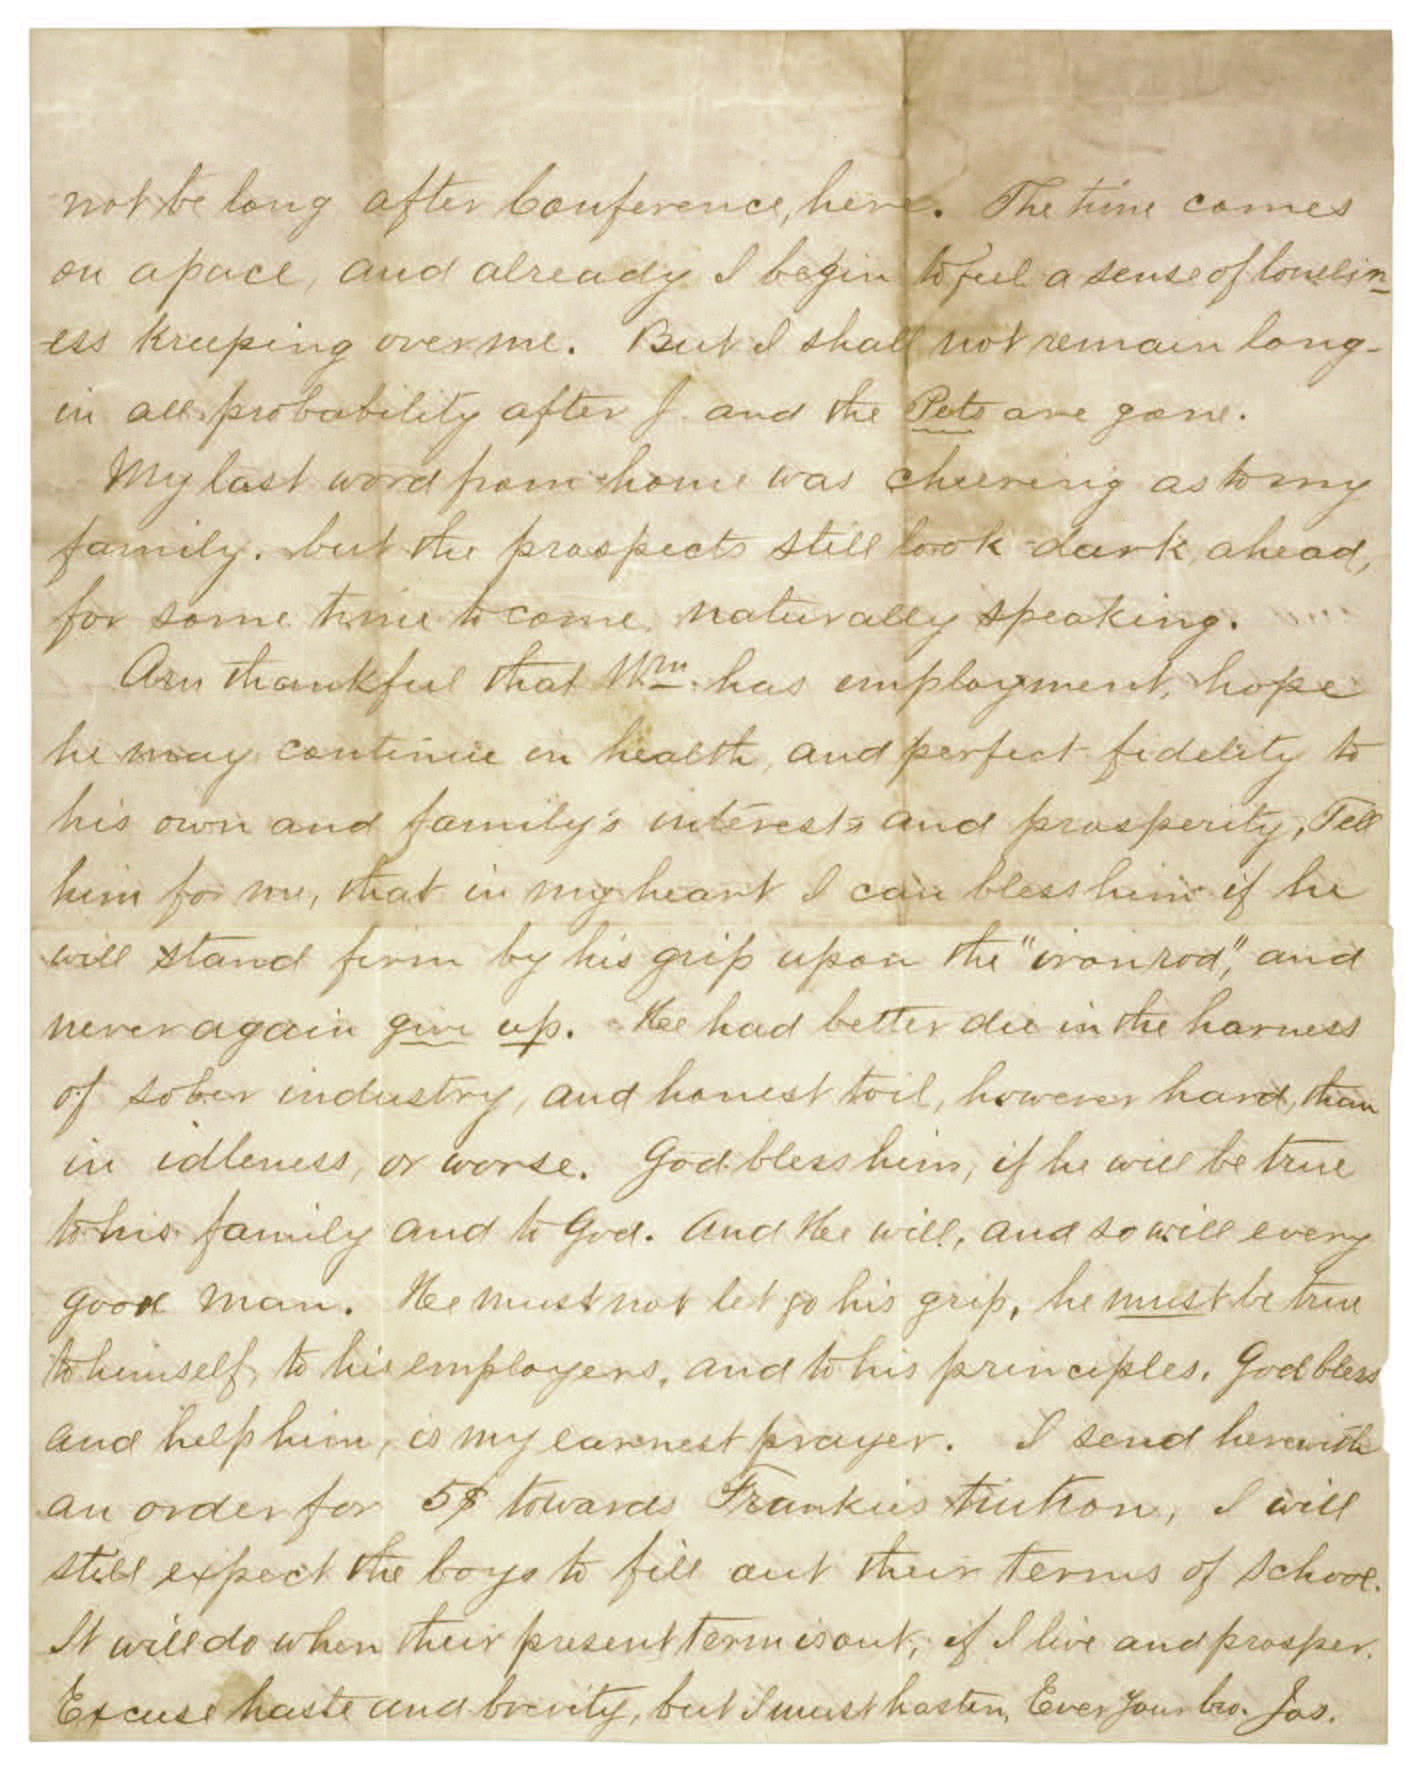 not be long after Conference, here. The time comes
on apace, and already I begin to feel a sense of lonelin-
ess kreeping over me. But I shall not remain long-
in all probability after J. and the Pets are gone.
My last word from home was cheering as to my
family. but the prospects still look dark ahead,
for some time to come, naturally speaking.
Am thankful that Wm. has employment, hope
he may continue in health, and perfect fidelity to
his own and family's interests and prosperity, Tell
him for me, that in my heart I can bless him if he
will stand firm by his grip upon the "iron rod", and
never again give up. He had better die in the harness
of sober industry, and honest toil, however hard, than
in idleness, or worse. God bless him, if he will be true
to his family and to God. And He will, and so will every
good man. He must not let go his grip, he must be true
to himself, to his employers, and to his principles. God bless
and help him, is my earnest prayer. I send herewith
an order for 5$ towards Frankies tuition, I will
still expect the boys to fill out their terms of school.
It will do when their present term is out, if I live and prosper.
Excuse haste and brevity, but I must hasten, Ever your bro. Jos.